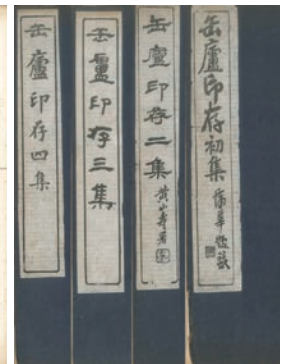 缶廬印存初集
缶廬印存二集 黄山壽署
缶廬印存三集
缶廬印存四集